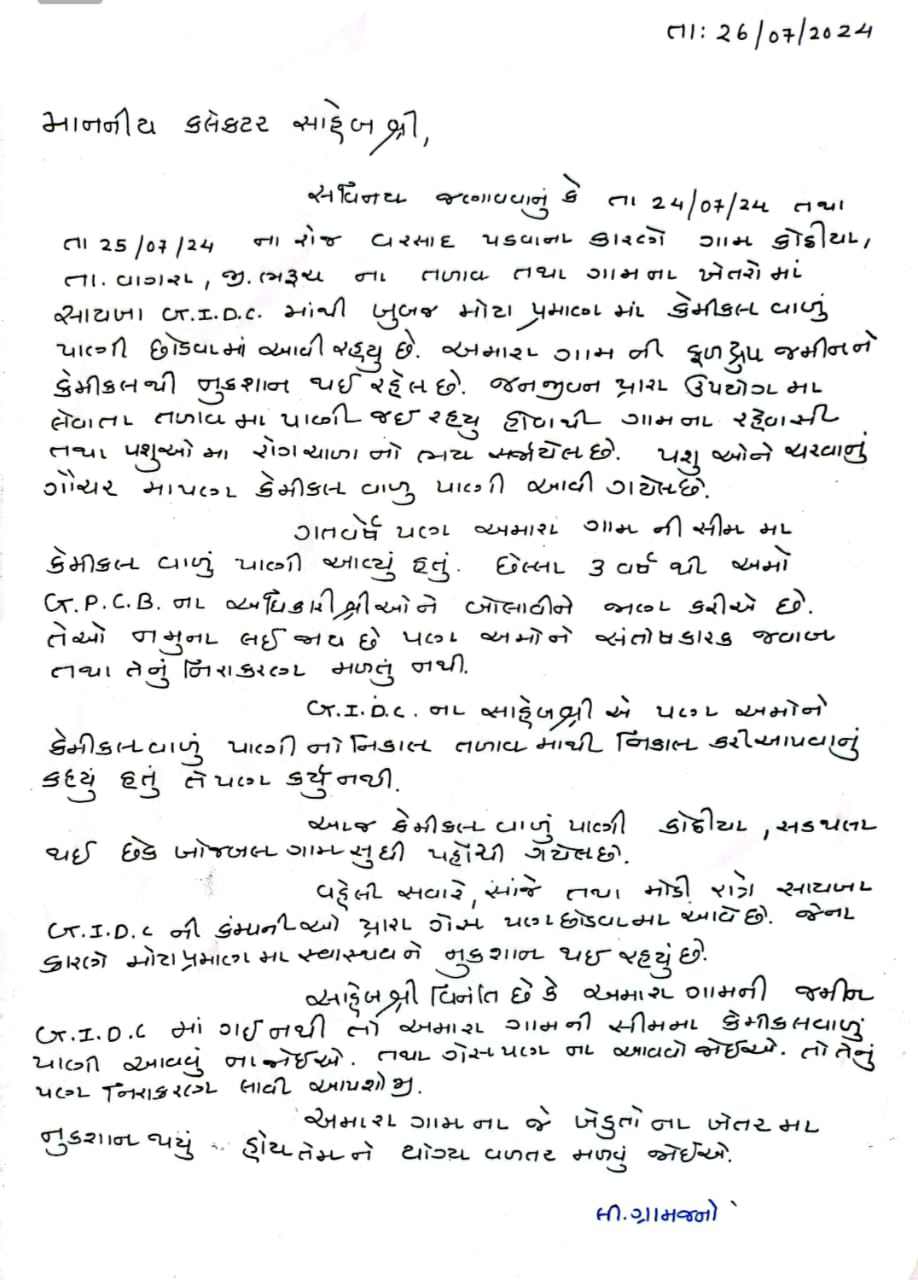 તા: 26/07/2024
માનનીય કલેકટર સાહેબ શ્રી,
સવિનય જણાવવાનું કે તા 24/07/24 તથા
તા 25/07/24 ના રોજ વરસાદ પડવાના કારણે ગામ કોઠીયા,
તા. વાગરા, જી. ભરૂચ ના તળાવ તથા ગામના ખેતરો માં
સાયખા G.I.D.C. માંથી ખુબજ મોટા પ્રમાણ માં કેમીકલ વાળું
પાણી છોડવામાં આવી રહયુ છે. અમારા ગામ ની ફળદ્રુપ જમીનને
કેમીકલથી નુકશાન થઈ રહેલ છે. જનજીવન દ્વારા ઉપયોગ મા
લેવાતા તળાવ મા પાણી જઈ રહયુ હોવાથી ગામના રહેવાસી
તથા પશુઓ મા રોગચાળા નો ભય સર્જાયેલ છે. પશુ ઓને ચરવાનું
ગૌચર મા પણ કેમીકલ વાળુ પાણી આવી ગયેલ છે.
ગતવર્ષે પણ અમારા ગામ ની સીમ મા
કેમીકલ વાળું પાણી આવ્યું હતું. છેલ્લા 3 વર્ષ થી અમો
G.P.C.B. ના અધિકારીશ્રીઓને બોલાવીને જાણ કરીએ છે.
તેઓ નમુના લઈ જાય છે પણ અમોને સંતોષકારક જવાબ
તથા તેનું નિરાકરણ મળતું નથી.
G.I.D.C. ના સાહેબશ્રી એ પણ અમોને
કેમીકલવાળું પાણી નો નિકાલ તળાવ માથી નિકાલ કરી આપવાનું
કહયું હતું તે પણ કર્યુ નથી.
આજ કેમીકલ વાળું પાણી કોઠીયા, સડથલા
થઈ છેક ખોજબલ ગામ સુધી પહોંચી ગયેલ છે.
વહેલી સવારે, સાંજે તથા મોડી રાત્રે સાયખા
G.I.D.C ની કંમ્પનીઓ દ્વારા ગેસ પણ છોડવામા આવે છે. જેના
કારણે મોટા પ્રમાણ મા સ્વાસ્થય ને નુકશાન થઈ રહયું છે.
સાહેબશ્રી વિનંતિ છે કે અમારા ગામની જમીન
G.I.D.C માં ગઈ નથી તો અમારા ગામની સીમમા કેમીકલવાળું
પાણી આવવું ના જોઈએ. તથા ગેસ પણ ના આવવો જોઈએ. તો તેનું
પણ નિરાકરણ લાવી આપશોજી.
અમારા ગામ ના જે ખેડુતો ના ખેતર મા
નુકશાન થયું હોય તેમ ને યોગ્ય વળતર મળવું જોઈએ.
લી. ગ્રામજનો